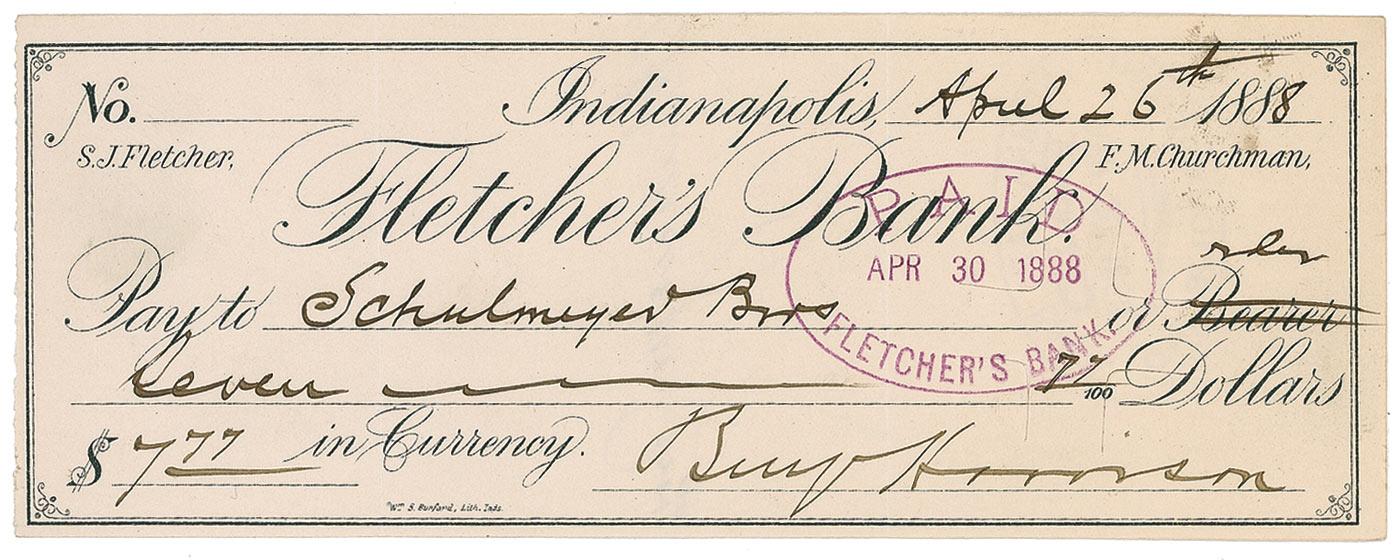 No. Indianapolis, April 26th 1888
S.J. Fletcher, F.M. Churchman,
Fletcher's Bank.
PAID
APR 30 1888
FLETCHER'S BANK.
order
Pay to Schulmeyer Bros or Bearer
Seven 77/100 Dollars
$ 7 77 in Currency. Benj Harrison
Wm S. Burford, Lith. Inds.